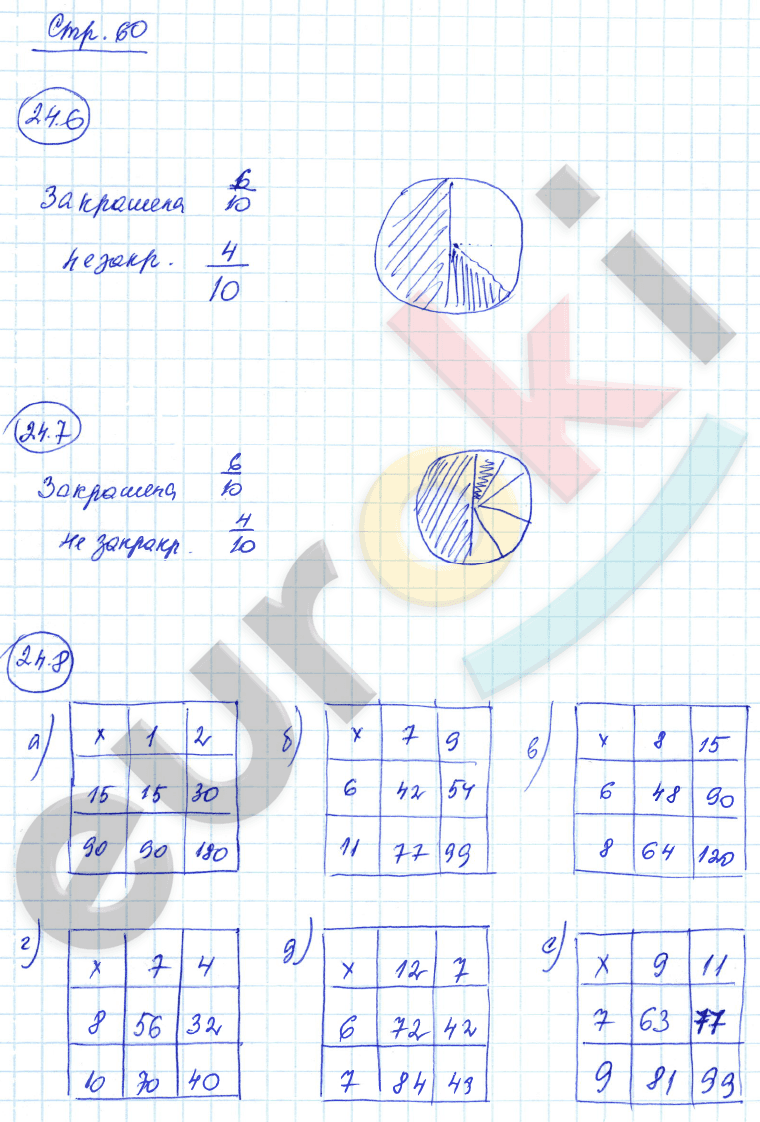 Стр. 60
24.6
Закрашена 6/10
Незакр. 4/10
24.7
Закрашена 6/10
Не закракр. 4/10
24.8
а) x 1 2
15 15 30
90 90 180
б) x 7 9
6 42 54
11 77 99
в) x 8 15
6 48 90
8 64 120
г) x 7 4
8 56 32
10 70 40
д) x 12 7
6 72 42
7 84 49
е) x 9 11
7 63 77
9 81 99
euroki